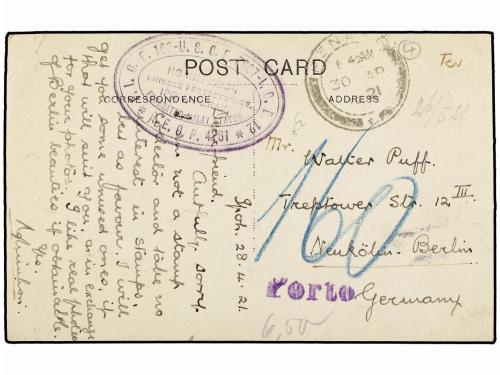 POST CARD
CORRESPONDENCE
ADDRESS
Ipoh. 28.4.21.
friend,
Awfully sorry
am not a stamp
collector and take no
interest in stamps,
but as favour I will
get you some unused ones, if
that will suit you, in exchange
for your photos. I like real photos
of Berlin beauties if obtainable.
Yrs.
30 AP
21
4
26/5-21
Mr.
Walter Puff.
Treptower Str. 12 III.
Neukölln-Berlin
Germany
160
Porto
6,50